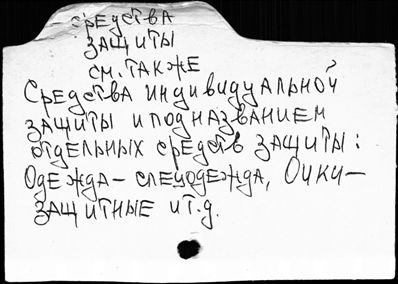 СРЕДСТВА
ЗАЩИТЫ
СМ. ТАКЖЕ
СРЕДСТВА ИНДИВИДУАЛЬНОЙ
ЗАЩИТЫ И ПОД НАЗВАНИЕМ
ОТДЕЛЬНЫХ СРЕДСТВ ЗАЩИТЫ:
ОДЕЖДА – СПЕЦОДЕЖДА, ОЧКИ –
ЗАЩИТНЫЕ И Т.Д.